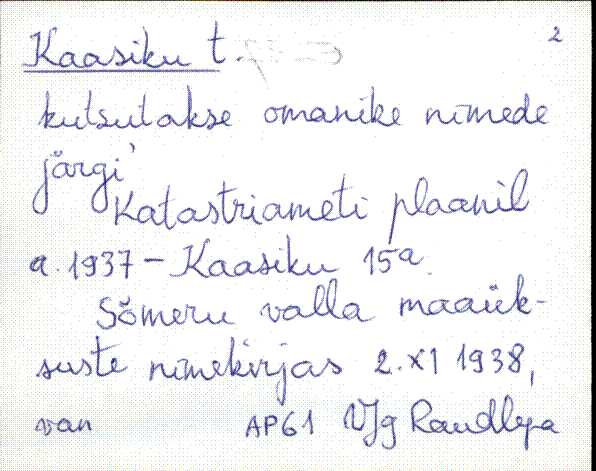 Kaasiku t. 2
kutsutakse omanike nimede
järgi
Katastriameti plaanil
a. 1937 – Kaasiku 15a.
Sõmeru valla maaük-
suste nimekirjas 2. XI 1938,
van AP61 VJg